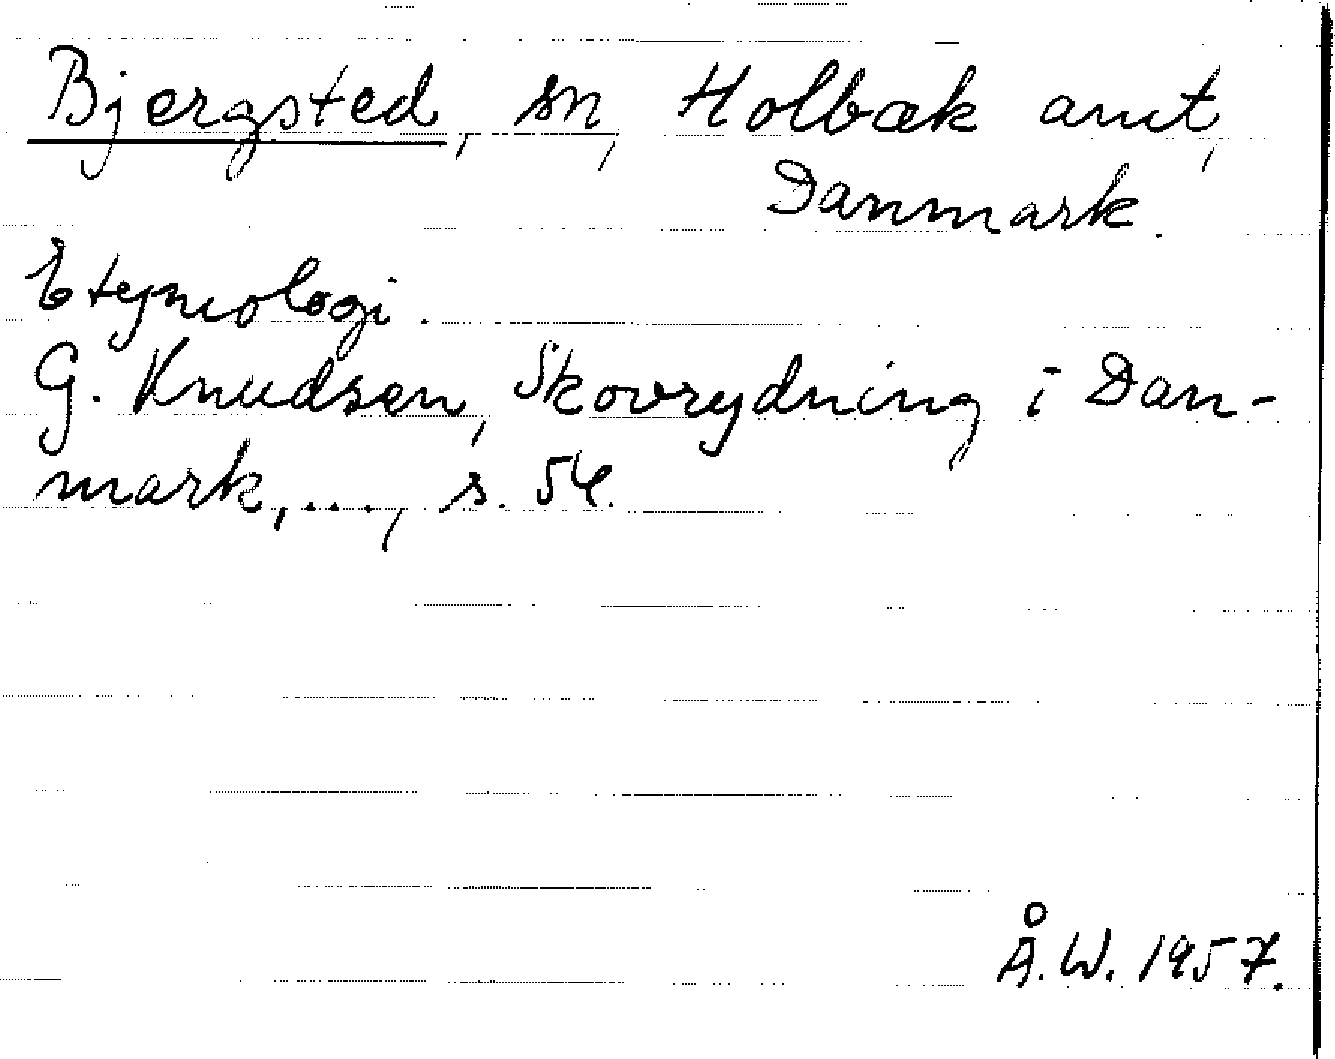 Bjergsted, sn, Holbæk amt,
Danmark.
Etymologi.
G. Knudsen, Skovrydning i Dan-
mark, ..., s. 54.
Å.W. 1957.